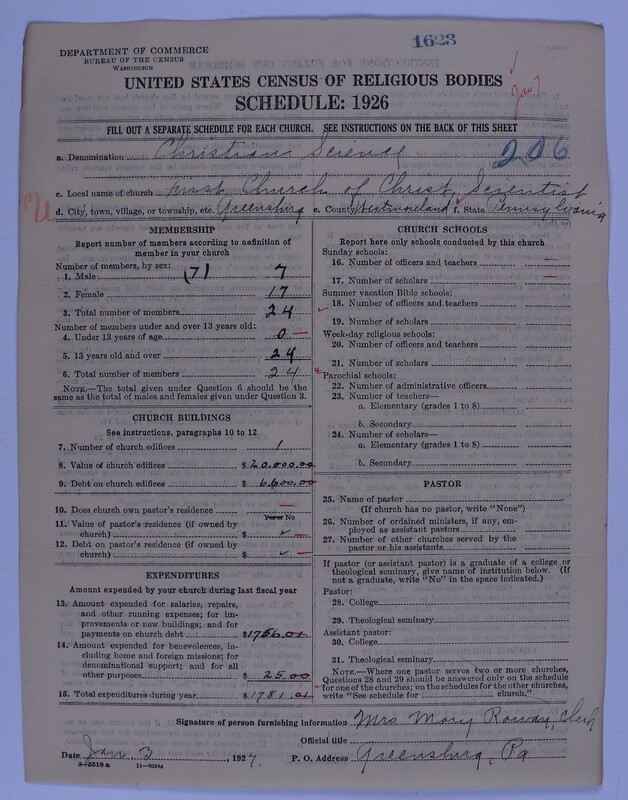 1623
DEPARTMENT OF COMMERCE
BUREAU OF THE CENSUS
WASHINGTON
UNITED STATES CENSUS OF RELIGIOUS BODIES
SCHEDULE: 1926
Jan 7
FILL OUT A SEPARATE SCHEDULE FOR EACH CHURCH. SEE INSTRUCTIONS ON THE BACK OF THIS SHEET
a. Denomination Christian Science 206
c. Local name of church First Church of Christ, Scientist
d. City, town, village, or township, etc. Greensburg e. County Westmoreland f. State Pennsylvania
MEMBERSHIP
Report number of members according to definition of
member in your church
Number of members, by sex:
1. Male (7) 7
2. Female 17
3. Total number of members 24
Number of members under and over 13 years old:
4. Under 13 years of age 0
5. 13 years old and over 24
6. Total number of members 24
NOTE.—The total given under Question 6 should be the
same as the total of males and females given under Question 3.
CHURCH BUILDINGS
See instructions, paragraphs 10 to 12
7. Number of church edifices 1
8. Value of church edifices $20,000.00
9. Debt on church edifices $6,600.00
10. Does church own pastor's residence —
Yes or No
11. Value of pastor's residence (if owned by
church) $ ✓ —
12. Debt on pastor's residence (if owned by
church) $ ✓ —
EXPENDITURES
Amount expended by your church during last fiscal year
13. Amount expended for salaries, repairs,
and other running expenses; for im-
provements or new buildings; and for
payments on church debt $1756.01
14. Amount expended for benevolences, in-
cluding home and foreign missions; for
denominational support; and for all
other purposes $25.00
15. Total expenditures during year $1781.01
CHURCH SCHOOLS
Report here only schools conducted by this church
Sunday schools:
16. Number of officers and teachers —
17. Number of scholars —
Summer vacation Bible schools:
18. Number of officers and teachers
19. Number of scholars
Week-day religious schools:
20. Number of officers and teachers
21. Number of scholars
Parochial schools:
22. Number of administrative officers
23. Number of teachers—
a. Elementary (grades 1 to 8)
b. Secondary
24. Number of scholars—
a. Elementary (grades 1 to 8)
b. Secondary
PASTOR
25. Name of pastor
(If church has no pastor, write "None")
26. Number of ordained ministers, if any, em-
ployed as assistant pastors
27. Number of other churches served by the
pastor or his assistants
If pastor (or assistant pastor) is a graduate of a college or
theological seminary, give name of institution below. (If
not a graduate, write "No" in the space indicated.)
Pastor:
28. College
29. Theological seminary
Assistant pastor:
30. College
31. Theological seminary
NOTE.—Where one pastor serves two or more churches,
Questions 28 and 29 should be answered only on the schedule
for one of the churches; on the schedules for the other churches,
write "See schedule for church."
Signature of person furnishing information Mrs Mary Clerk
Official title
Date Jan. 3, 1927. P. O. Address Greensburg, Pa
8-5518 a 11-9034a